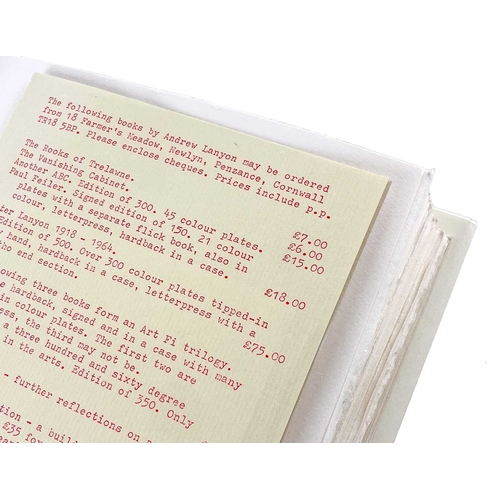 The following books by Andrew Lanyon may be ordered
from 18 Farmer's Meadow, Newlyn, Penzance, Cornwall
TR18 5BP. Please enclose cheques. Prices include p.p.
The Rooks of Trelawne. £7.00
The Vanishing Cabinet. £6.00
Another ABC. Edition of 300. 45 colour plates. £15.00
Paul Feiler. Signed edition of 150. 21 colour
plates with a separate flick book, also in
colour, letterpress, hardback in a case. £18.00
Lanyon 1918 - 1964.
Edition of 500. Over 300 colour plates tipped-in
hand, hardback in a case, letterpress with a
end section. £75.00
three books form an Art Fi trilogy.
hardback, signed and in a case with many
in colour plates. The first two are
the third may not be.
a three hundred and sixty degree
in the arts. Edition of 350. Only
- further reflections on
- a
£35 for